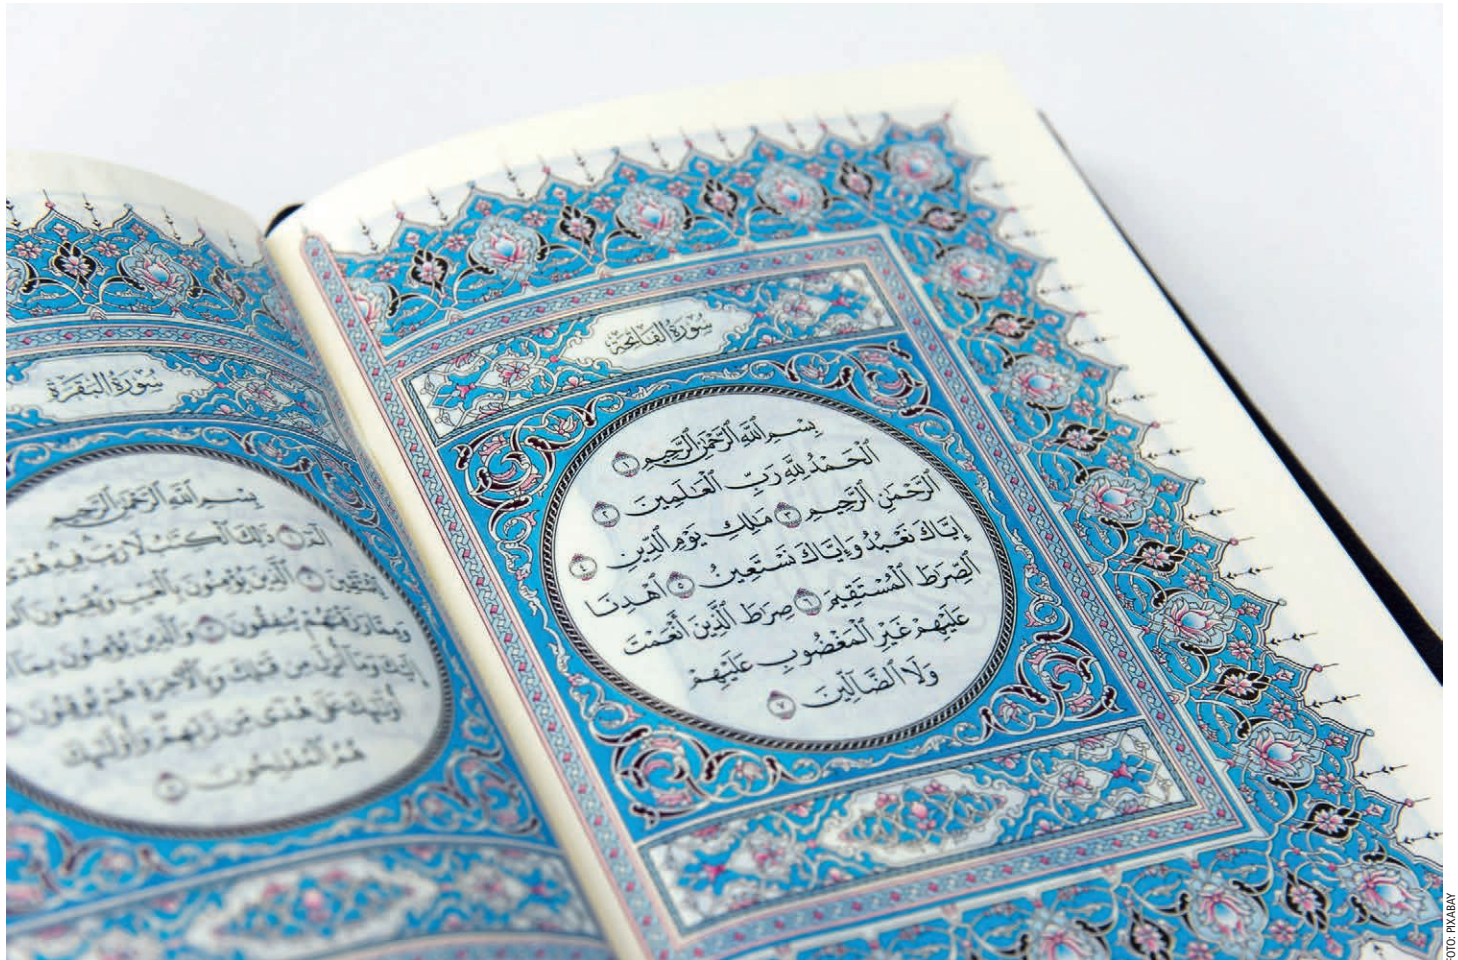 سُورَةُ الفَاتِحَةِ
بِسْمِ ٱللَّهِ ٱلرَّحْمَٰنِ ٱلرَّحِيمِ ١
ٱلْحَمْدُ لِلَّهِ رَبِّ ٱلْعَٰلَمِينَ ٢
ٱلرَّحْمَٰنِ ٱلرَّحِيمِ ٣ مَٰلِكِ يَوْمِ ٱلدِّينِ ٤
إِيَّاكَ نَعْبُدُ وَإِيَّاكَ نَسْتَعِينُ ٥ ٱهْدِنَا
ٱلصِّرَٰطَ ٱلْمُسْتَقِيمَ ٦ صِرَٰطَ ٱلَّذِينَ أَنْعَمْتَ
عَلَيْهِمْ غَيْرِ ٱلْمَغْضُوبِ عَلَيْهِمْ
وَلَا ٱلضَّآلِّينَ ٧
سُورَةُ البَقَرَةِ
بِسْمِ ٱللَّهِ ٱلرَّحْمَٰنِ ٱلرَّحِيمِ
الٓمٓ ١ ذَٰلِكَ ٱلْكِتَٰبُ لَا رَيْبَ فِيهِ هُدًى
لِّلْمُتَّقِينَ ٢ ٱلَّذِينَ يُؤْمِنُونَ بِٱلْغَيْبِ وَيُقِيمُونَ
وَمِمَّا رَزَقْنَٰهُمْ يُنفِقُونَ ٣ وَٱلَّذِينَ يُؤْمِنُونَ بِمَآ
إِلَيْكَ وَمَآ أُنزِلَ مِن قَبْلِكَ وَبِٱلْءَاخِرَةِ هُمْ يُوقِنُونَ
أُو۟لَٰٓئِكَ عَلَىٰ هُدًى مِّن رَّبِّهِمْ وَأُو۟لَٰٓئِكَ
هُمُ ٱلْمُفْلِحُونَ ٥
FOTO: PIXABAY